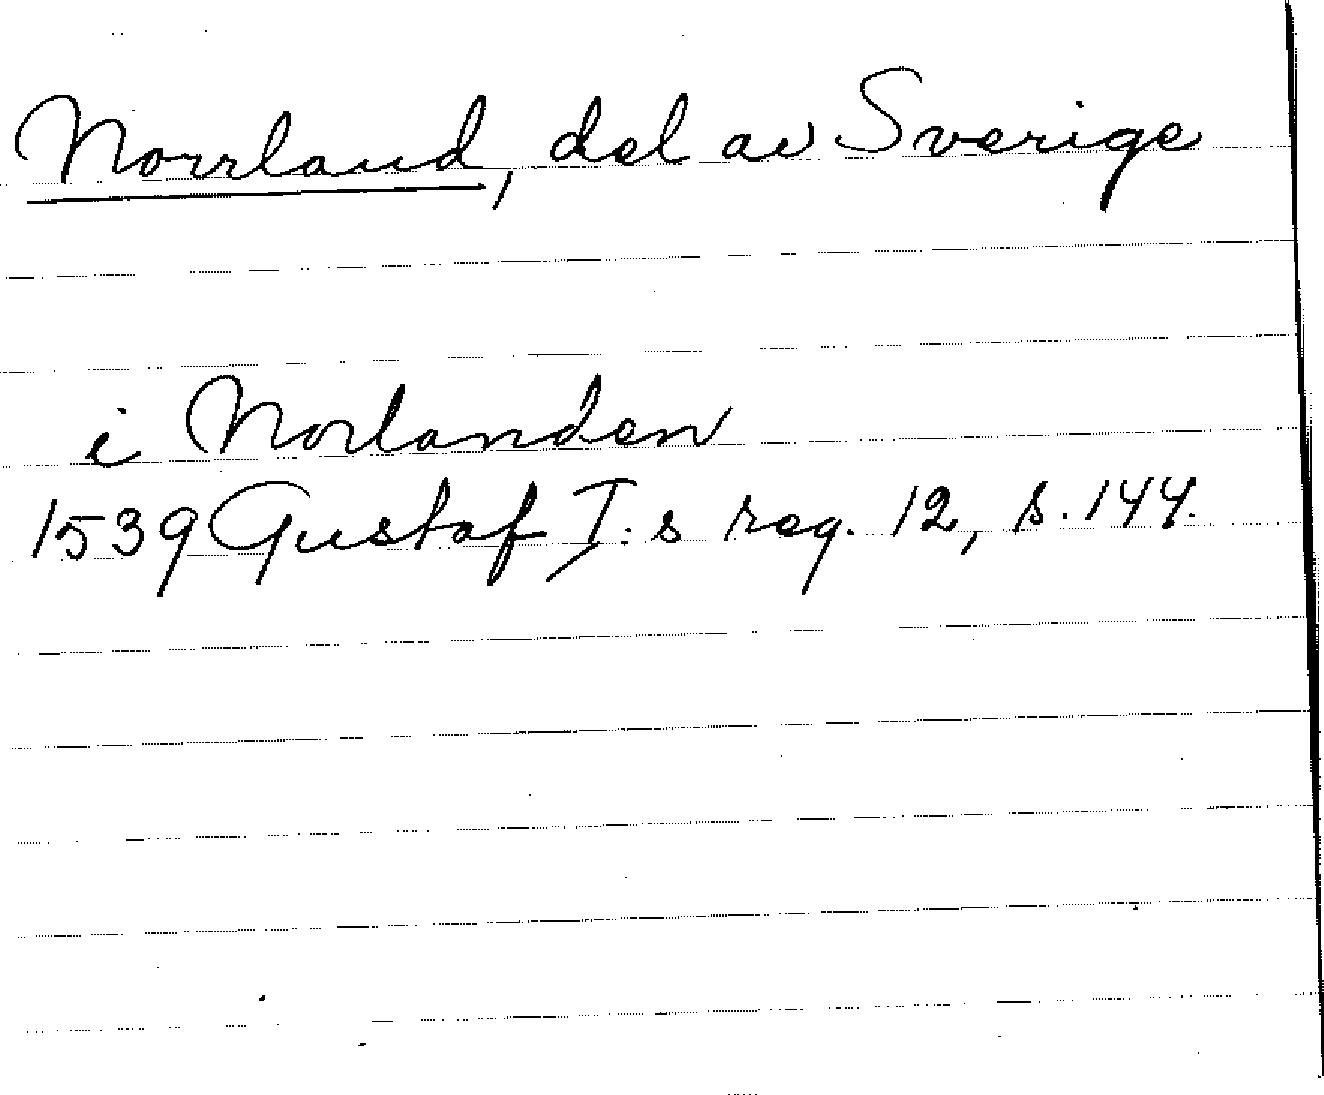 Norrland, del av Sverige
i Norlanden
1539 Gustaf I:s reg. 12, s. 144.